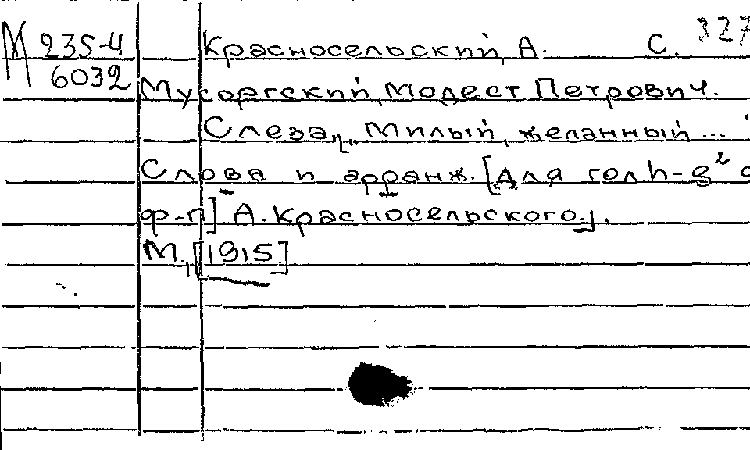 М 235-4 Красносельский, А. С. 327
6032 Мусоргский, Модест Петрович.
Слеза „Милый, желанный...
Слова и арранж. [для голоса с
ф-п] А. Красносельского].
М., [1915]